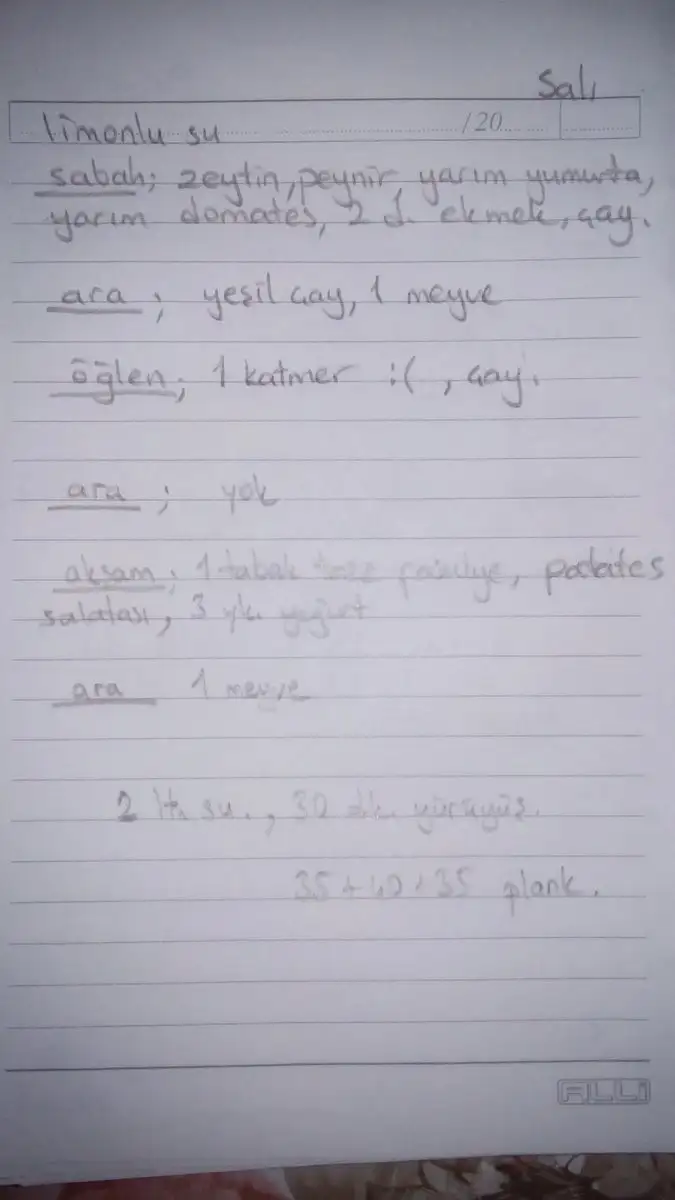 Salı
/20
limonlu su
sabah; zeytin, peynir, yarım yumurta,
yarım domates, 2 d. ekmek, çay.
ara ; yeşil çay, 1 meyve
öğlen; 1 katmer :( , çay.
ara ; yok
akşam; 1 tabak taze fasulye, patates
salatası, 3 yk. yoğurt
ara 1 meyve
2 lt. su., 30 dk. yürüyüş.
35+40+35 plank.
ALLi